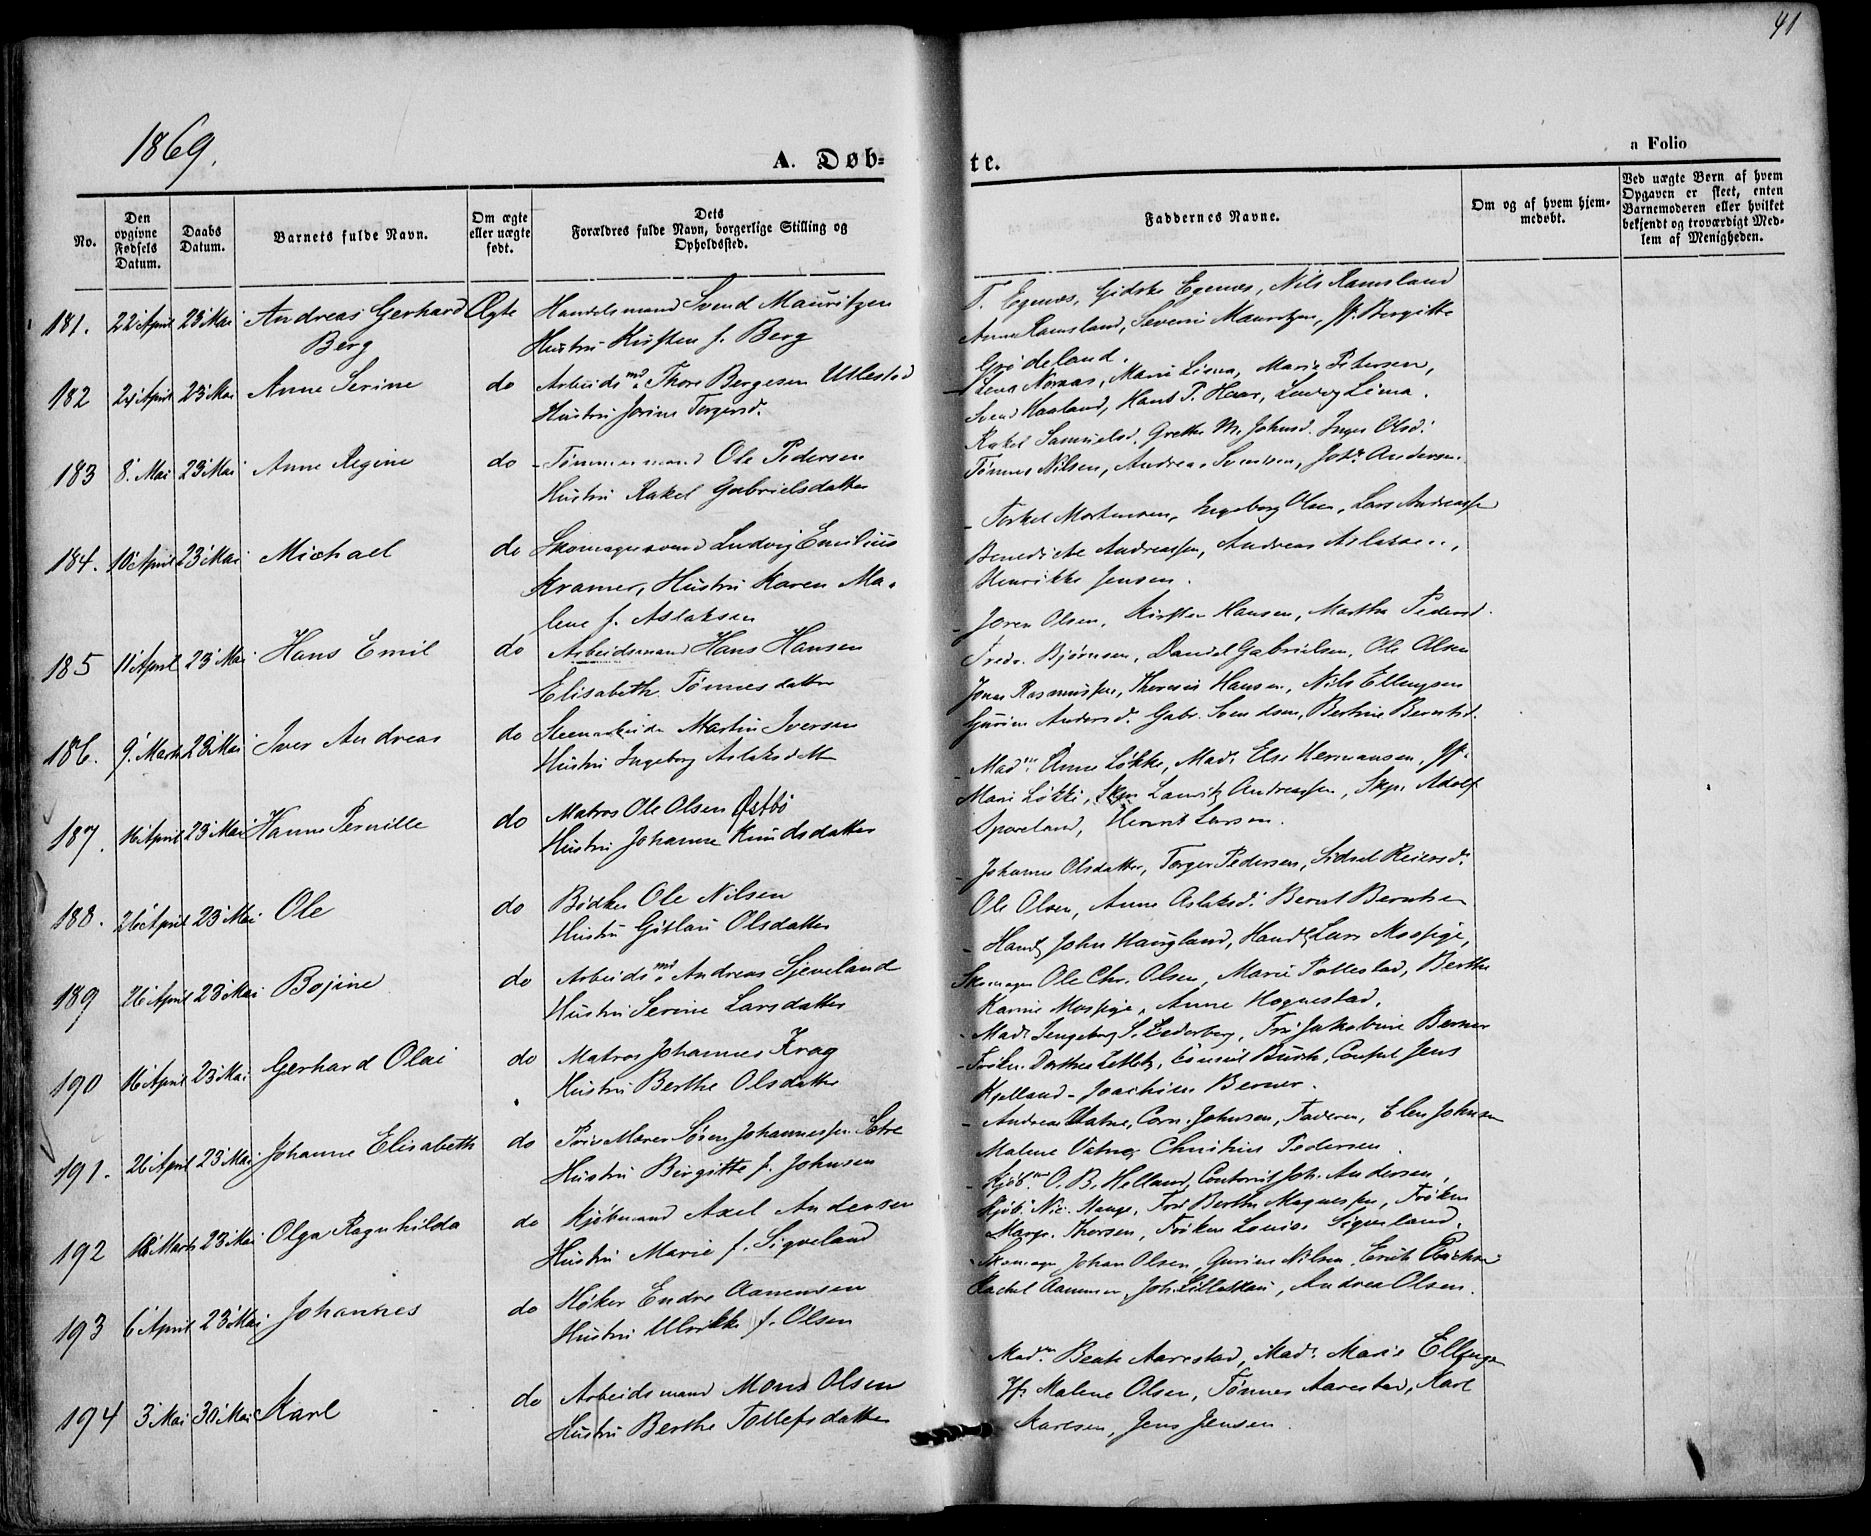 41
1869.
A. Døb-
te.
a Folio
No.
Den opgivne Fødsels Datum.
Daabs Datum.
Barnets fulde Navn.
Om ægte eller uægte født.
Dets Forældres fulde Navn, borgerlige Stilling og Opholdssted.
Faddernes Navne.
Om og af hvem hjemmedøbt.
Ved uægte Børn af hvem Opgaven er skeet, enten Barnemoderen eller hvilket bekjendt og troværdigt Medlem af Menigheden.
181. 22 April 23 Mai Andreas Gerhard Ægte Handelsmand Svend Mauritzen
Berg Hustru Kirsten f. Berg
T. Egenæs, Gidske Egenæs, Nils Ramsland
Anne Ramsland, Severin Mauritzen, Jf. Birgitte
Grödeland.
182 24 April 23 Mai Anne Serine do Arbeidsmd. Thore Bergesen Ullestad
Hustru Jorine Torgersd.
Lena Noraas, Marie Lima, Marie Petersen,
Svend Haaland, Hans P. Haar, Ludvig Lima.
183 8. Mai 23 Mai Anne Regine do Tömmermand Ole Pedersen
Hustru Rakel Gabrielsdatter
Rakel Samuelsd. Grethe M. Johnsd. Inger Olsd.
Tönnes Nilsen, Andreas Svendsen, Johs. Andersen.
184. 10 April 23 Mai Michael do Skomagersvend Ludvig Emilius
Kramer, Hustru Karen Ma-
lene f. Aslaksen
- Torkel Mortensen, Ingeborg Olsen, Lars Andreassen
Benedicte Andreassen, Andreas Aslaksen,
Henrikke Jensen.
185 11 April 23 Mai Hans Emil do Arbeidsmand Hans Hansen
Elisabeth Tönnesdatter
- Joren Olsen, Kirsten Hansen, Marthe Pedersd.
Fredr. Björnsen, Daniel Gabrielsen, Ole Olsen
186. 9. Marts 23 Mai Iver Andreas do Steenarbeider Martin Iversen
Hustru Ingeborg Aslaksdatter
Jonas Rasmussen, Theresia Hansen, Nils Ellingsen
Gurine Andersd. Gabr. Svendsen, Bertine Berntsd.
187. 16 April 23 Mai Hanne Pernille do Matros Ole Olsen Østbö
Hustru Johanne Knudsdatter
- Madm. Anne Løkke, Mad. Else Hermansen, Jf.
Marie Løkke, Skpr Lauritz Andreassen, Skpr. Adolf
Spoveland, Henrik Larsen.
188. 26 April 23 Mai Ole do Bödker Ole Nilsen
Hustru Gitlau Olsdatter
- Johanne Olsdatter, Torger Pedersen, Sidsel Reiersd.
Ole Olsen, Anne Aslaksd. Bernt Berntsen
189 26 April 23 Mai Bojine do Arbeidsmd. Andreas Sjeveland
Hustru Serine Larsdatter
- Handl. John Haugland, Handl. Lars Mospige,
Skomager Ole Chr. Olsen, Marie Pollestad, Berthe
Karine Mospige, Anne Hognestad.
190 16 April 23 Mai Gerhard Olai do Matros Johannes Krag
Hustru Berthe Olsdatter
- Mad. Ingeborg S. Cederberg, Frü Jakobine Berner
- Fröken Dorthea Zetlitz, Consul Buch, Consul Jens
Kjelland - Joachim Berner.
191. 26 April 23 Mai Johanne Elisabeth do Sören Johannessen Sætre
Hustru Birgitte f. Johnsen
- Andreas Vatne, Corn. Johnsen, Faderen, Elen Johnsen
Malene Vatne, Christine Pedersen.
192 18 Marts 23 Mai Olga Ragnhilda do Kjøbmand Axel Andersen
Hustru Marie f. Sigveland
- Kjöbm. O. B. Helland, Contorist Joh. Andersen,
Kjöb. Nic. Hauge, Frü Berthe Magnessen, Fröken
Margr. Thorsen, Fröken Louise Sigveland.
193 6 April 23 Mai Johannes do Høker Endre Aanensen
Hustru Ulrikke f. Olsen
- Skomager Johan Olsen, Gurine Nilsen, Erik Erichsen
Rachel Aanensen, Joh. Lillettau, Andrea Olsen.
194 3 Mai 30 Mai Karl do Arbeidsmand Mons Olsen
Hustru Berthe Tollefsdatter
Madm. Beate Aarestad, Mad. Marie Ellingsen
Jf. Malene Olsen, Tönnes Aarestad, Karl
Karlsen, Jens Jensen.